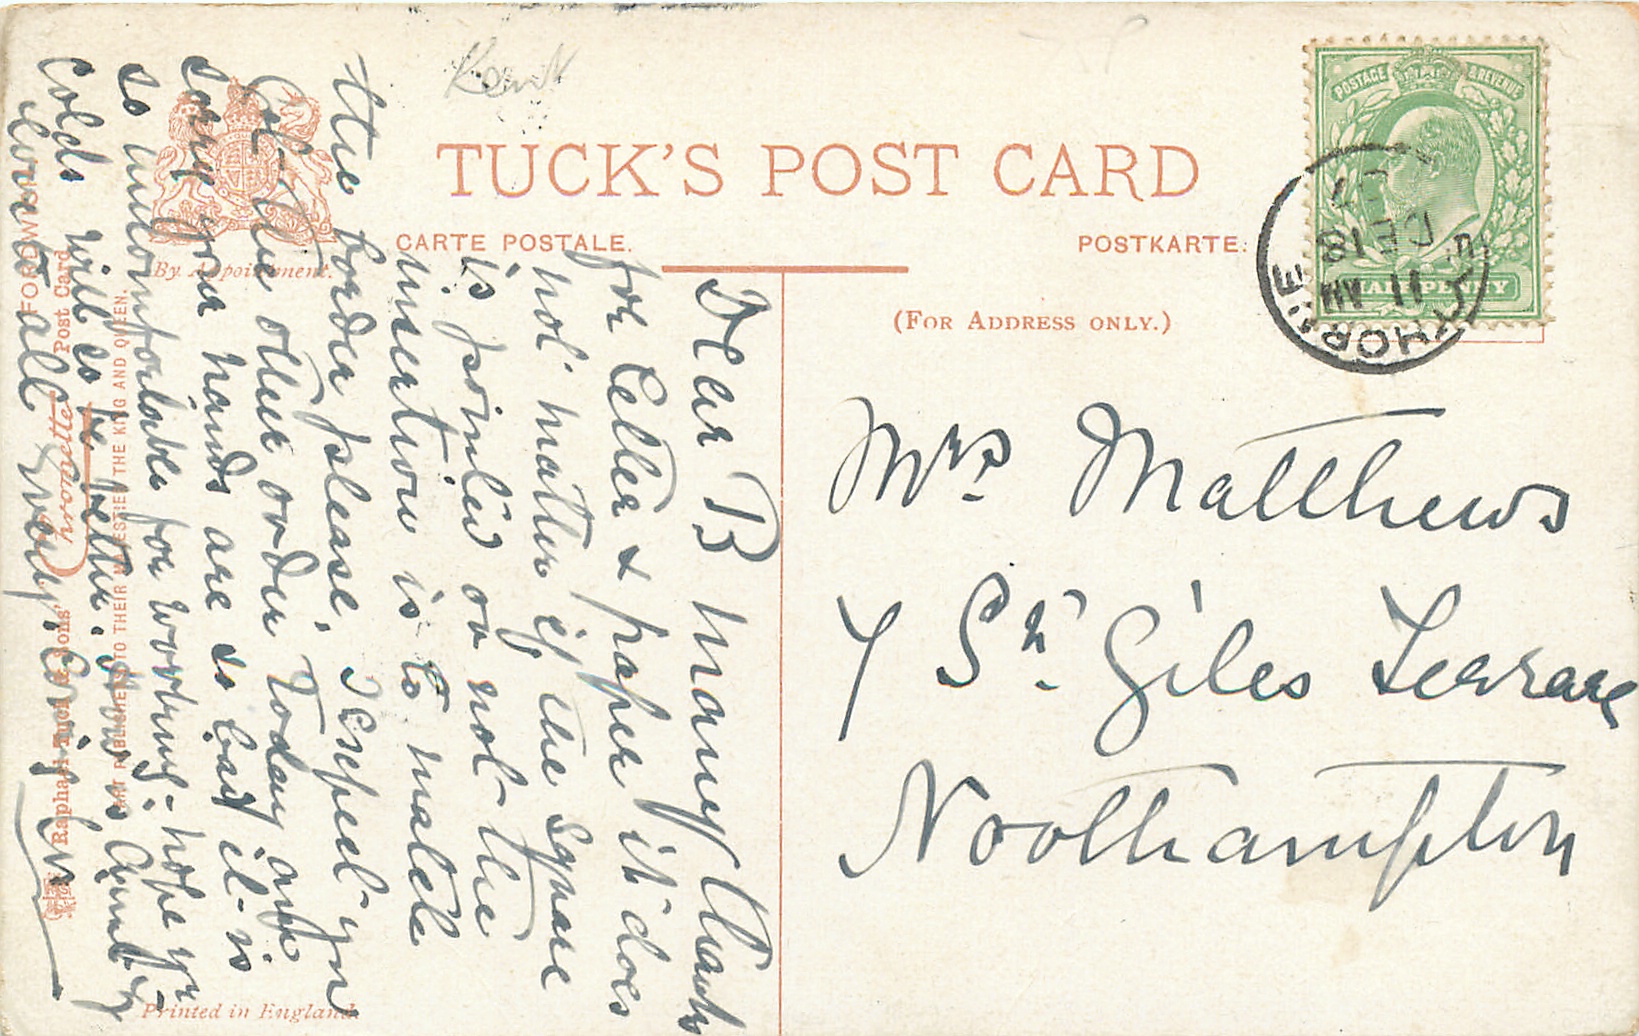 Kent
TUCK'S POST CARD
CARTE POSTALE.
POSTKARTE.
(FOR ADDRESS ONLY.)
POSTAGE & REVENUE
HALFPENNY
THOR
11 AM
DE 18
07
By Appointment.
Mrs Matthews
7 St Giles Terrace
Northampton
Dear B Many thanks
for letter & paper it does
not matter if the square
is pointed or not the
insertion is to match
the border please. I expect you
got the other order today am
sorry your hands are so bad it is
so uncomfortable for working - hope yr
colds will so be better. This is
Love to all
FORDWICH
Raphael Tuck & Sons' Post Card
ART PUBLISHERS TO THEIR MAJESTIES THE KING AND QUEEN.
Printed in England.